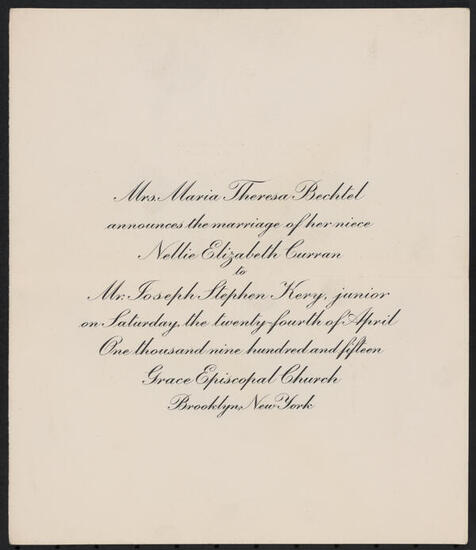 Mrs. Maria Theresa Bechtel
announces the marriage of her niece
Nellie Elizabeth Curran
to
Mr. Joseph Stephen Kery, junior
on Saturday, the twenty-fourth of April
One thousand nine hundred and fifteen
Grace Episcopal Church
Brooklyn, New York